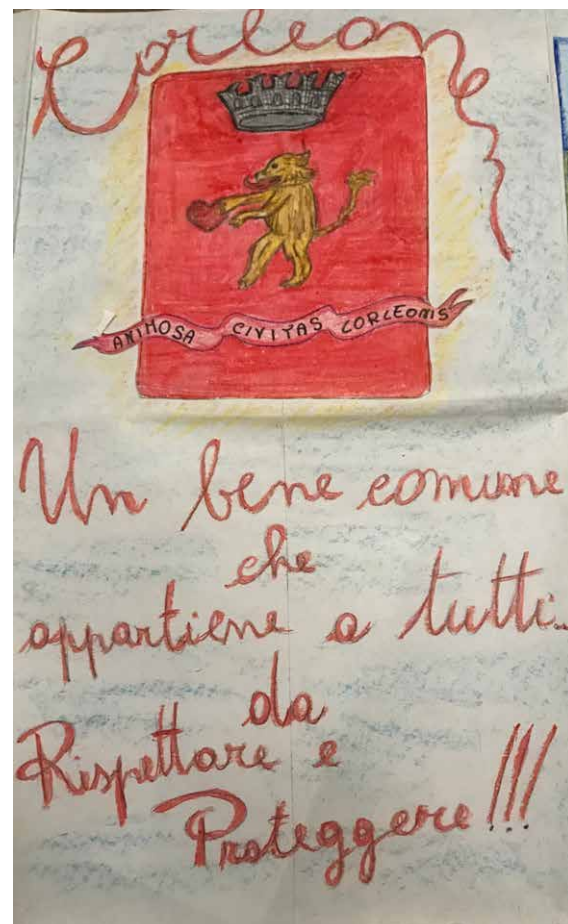 Corleone
ANIMOSA CIVITAS CORLEONIS
Un bene comune
che
appartiene a tutti..
da
Rispettare e
Proteggere!!!